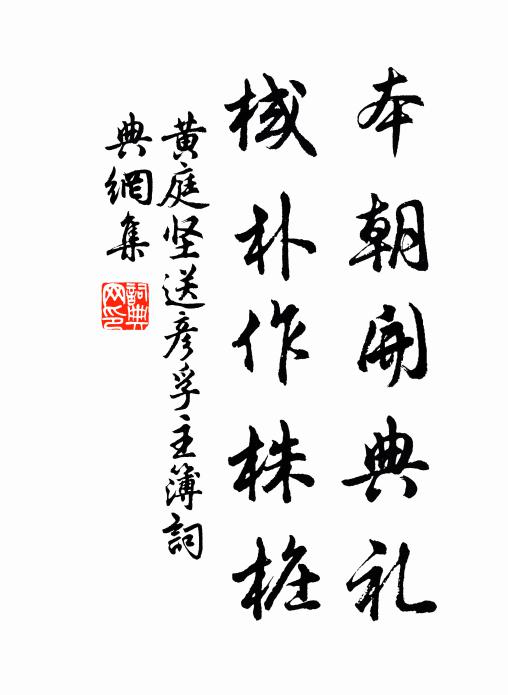 本朝開典礼
棫朴作株桩
黄庭坚送彦孚主簿詞
典網集
詞典
网印